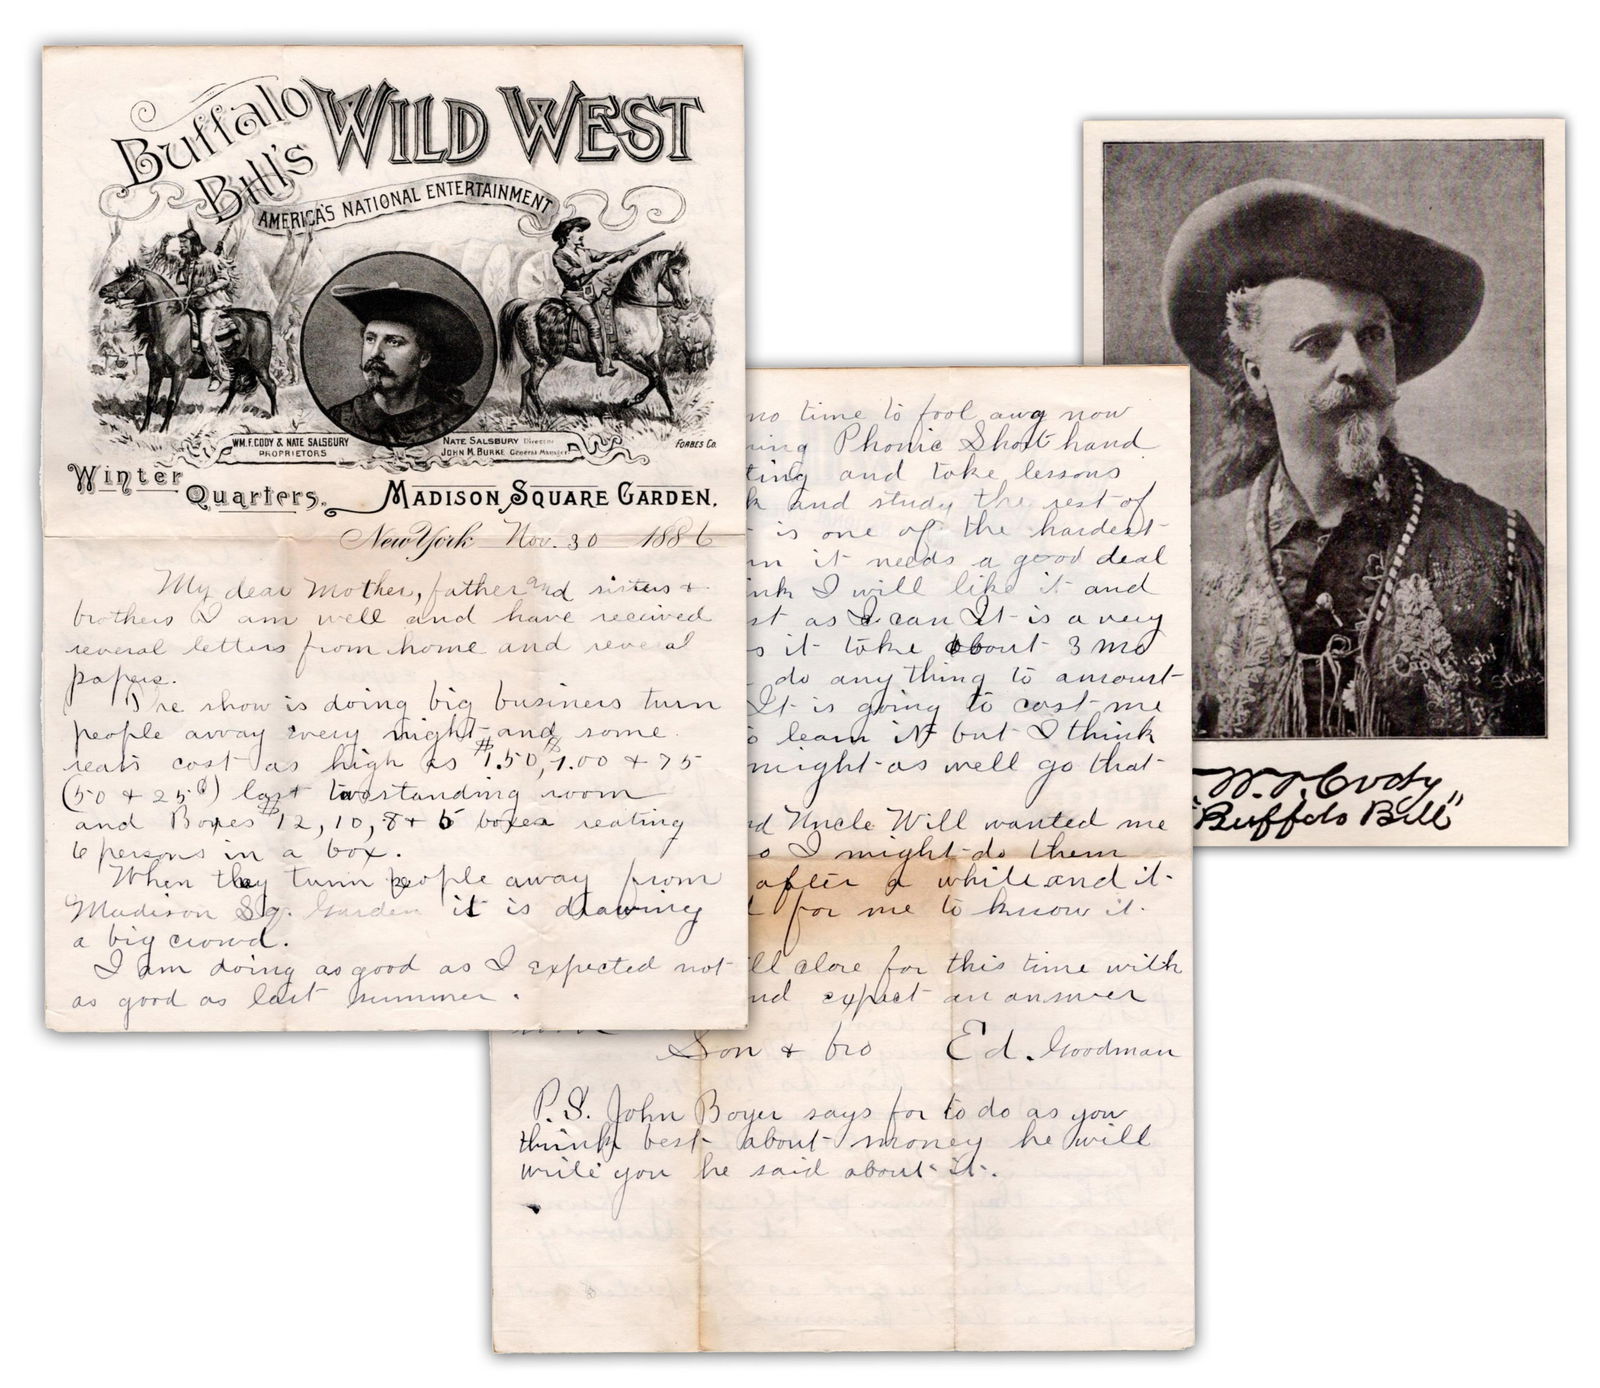 Buffalo
Bill's
WILD WEST
AMERICA'S NATIONAL ENTERTAINMENT
WM. F. CODY & NATE SALSBURY
PROPRIETORS
NATE SALSBURY Director
JOHN M. BURKE General Manager
FORBES Co.
Winter
Quarters,
MADISON SQUARE GARDEN.
New York Nov. 30 1886
My dear Mother, father and sisters +
brothers I am well and have received
several letters from home and several
papers.
The show is doing big business turn
people away every night and some
seats cost as high as $1.50, $1.00 + 75
(50 + 25¢) last standing room
and Boxes $12, 10, 8 + 6 boxes seating
6 persons in a box.
When they turn people away from
Madison Sq. Garden it is drawing
a big crowd.
I am doing as good as I expected not
as good as last summer.
no time to fool awy now
ning Phonic Short hand
ting and take lessons
k and study the rest of
is one of the hardest
rn it needs a good deal
ink I will like it and
st as I can It is a very
s it take about 3 mo
do any thing to amount
It is going to cost me
o learn it but I think
might as well go that
nd Uncle Will wanted me
o I might do them
after a while and it
for me to know it.
ll close for this time with
nd expect an answer
Son + bro Ed. Goodman
P.S. John Boyer says for to do as you
think best about money he will
write you he said about it.
Copyright
Stacy
W. F. Cody
"Buffalo Bill"